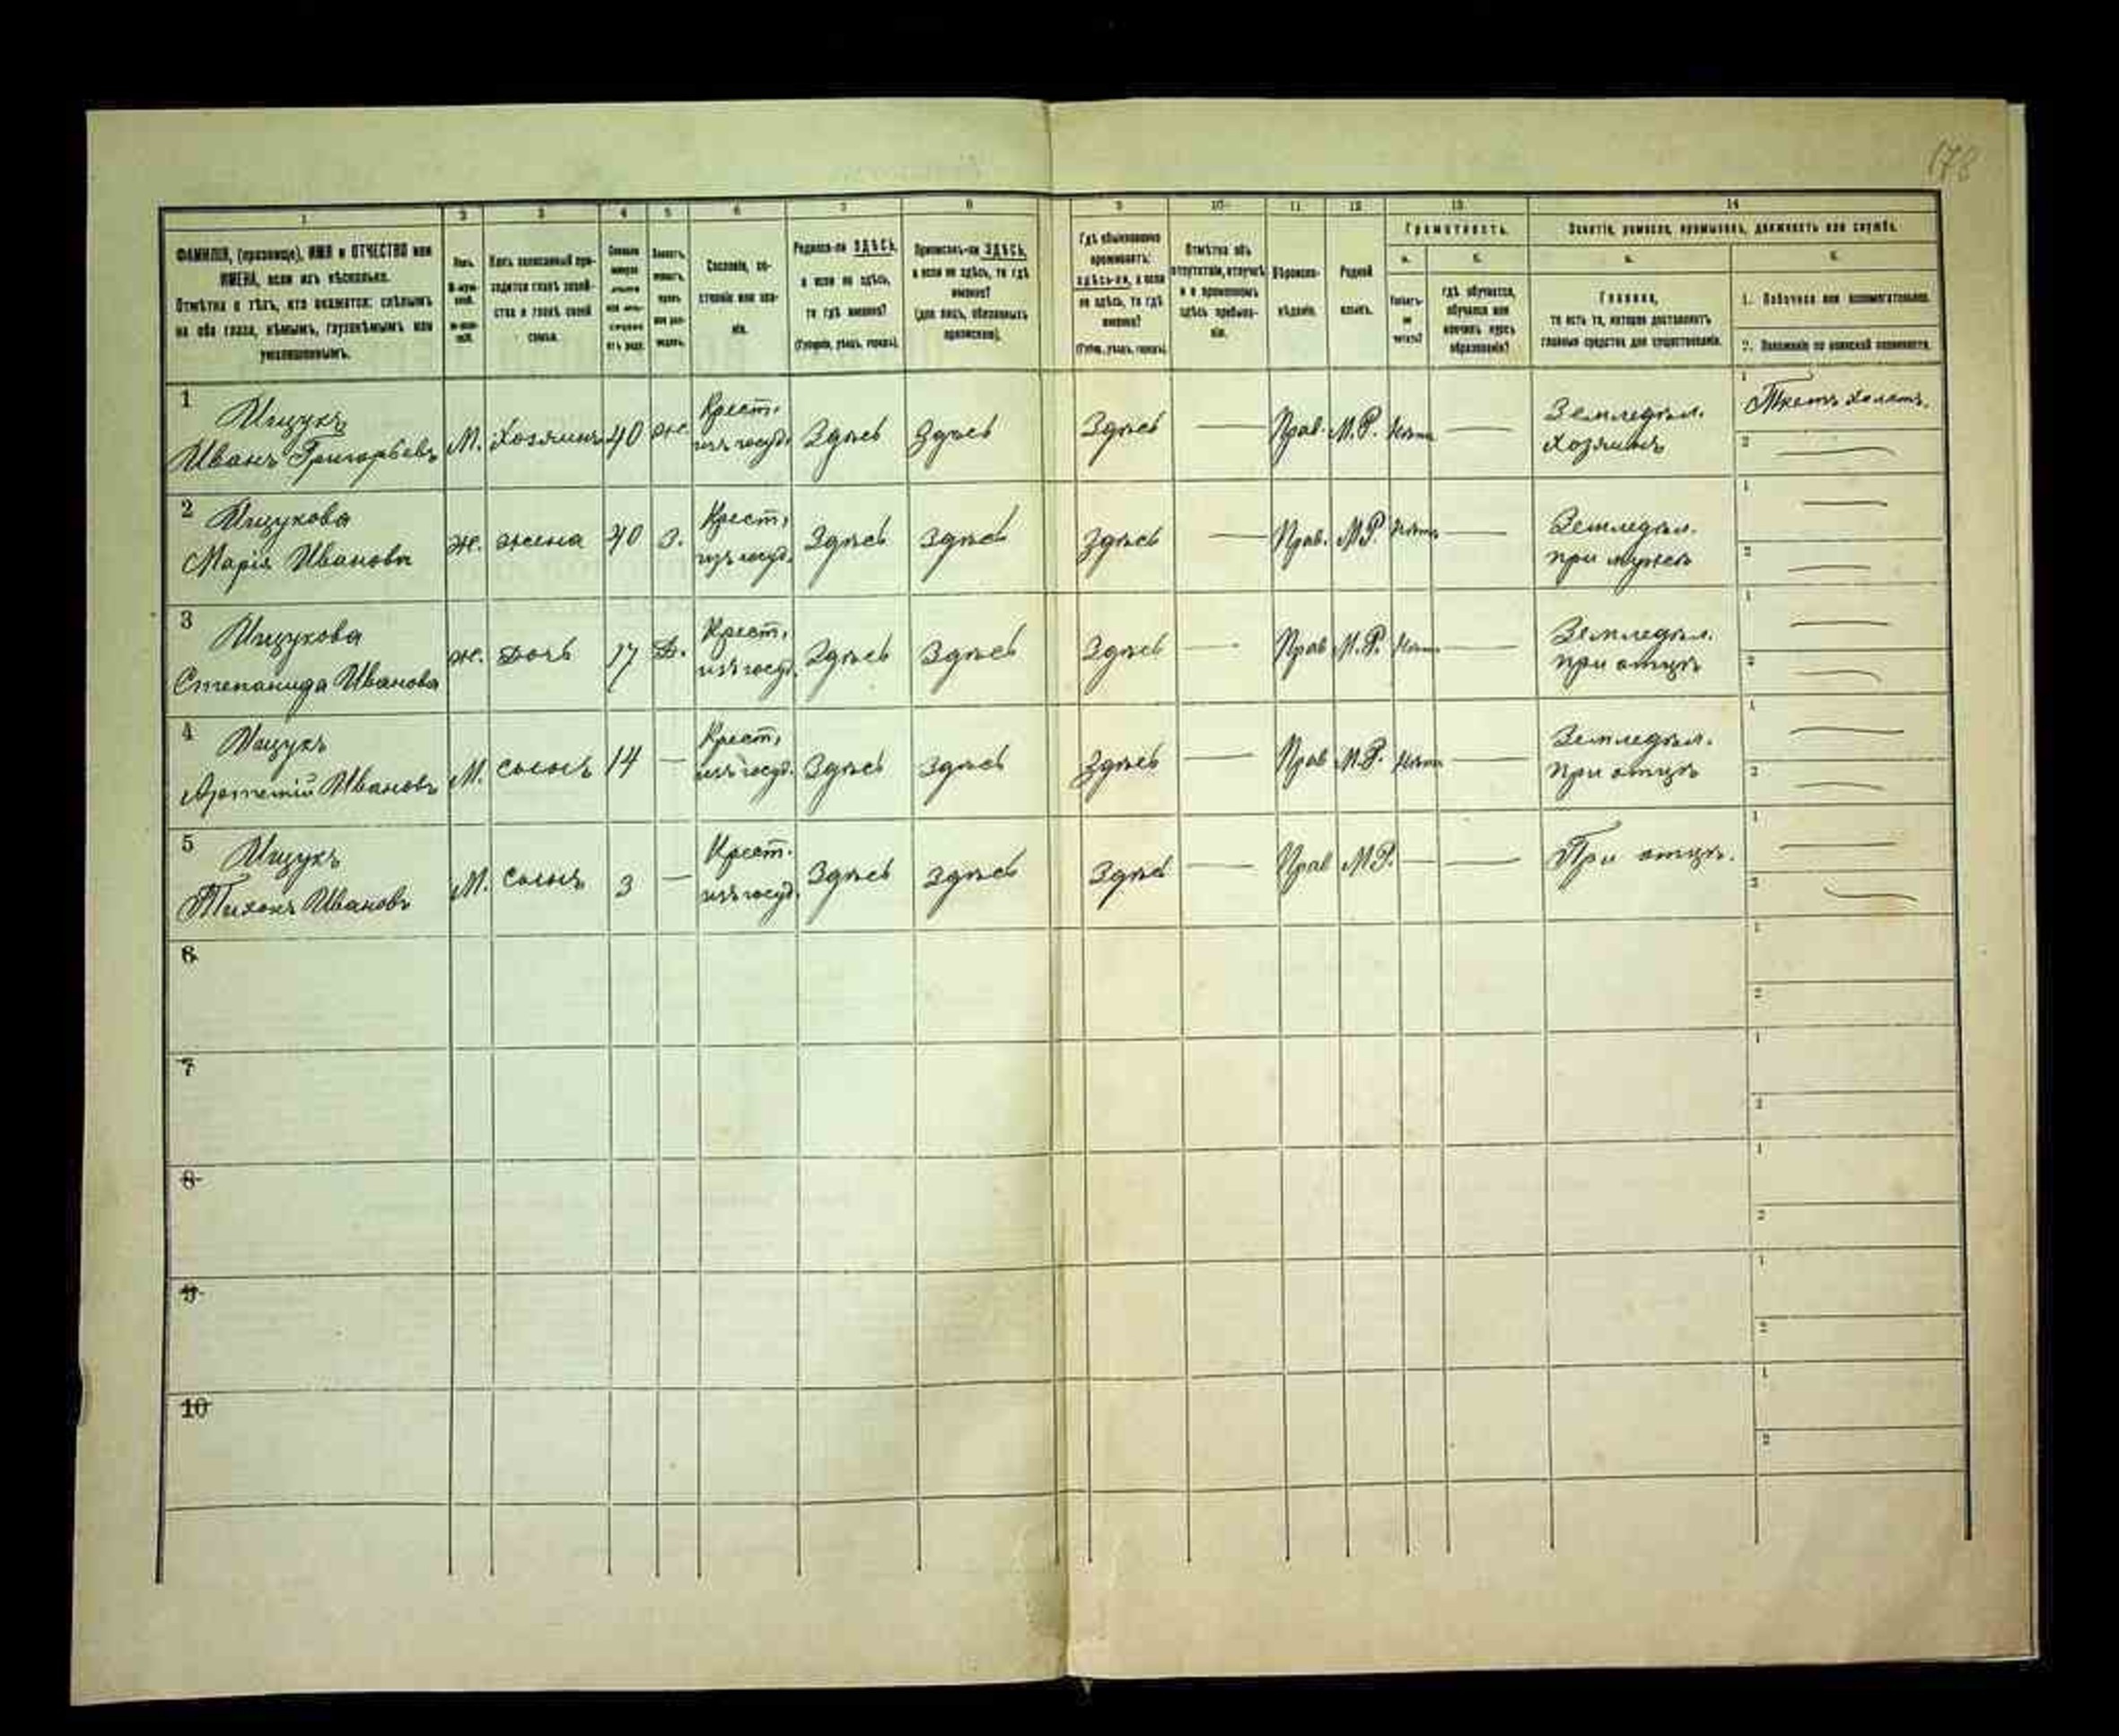 178
1 2 3 4 5 6 7 8 9 10 11 12 13 14
ФАМИЛІЯ, (прозвище), ИМЯ и ОТЧЕСТВО или
ИМЕНА, если ихъ нѣсколько.
Отмѣтка о тѣхъ, кто окажется: слѣпымъ
на оба глаза, нѣмымъ, глухонѣмымъ или
умалишеннымъ.
Полъ.
Какъ записанный при-
ходится главѣ хозяй-
ства и главѣ своей
семьи.
Сословіе, со-
стояніе или зва-
ніе.
Родился-ли ЗДѢСЬ,
а если не здѣсь,
то гдѣ именно?
(Губернія, уѣздъ, городъ).
Приписанъ-ли ЗДѢСЬ,
а если не здѣсь, то гдѣ
именно?
(для лицъ, обязанныхъ
припискою).
Гдѣ обыкновенно
проживаетъ:
здѣсь-ли, а если
не здѣсь, то гдѣ
именно?
(Губ., уѣздъ, городъ).
Отмѣтка объ
отсутствіи, отлучкѣ
и о временномъ
здѣсь пребыва-
ніи.
Вѣроиспо-
вѣданіе.
Родной
языкъ.
Грамотность.
а. б.
Умѣетъ-
ли
читать?
гдѣ обучается,
обучался или
кончилъ курсъ
образованія?
Занятіе, ремесло, промыселъ, должность или служба.
а. б.
Главное,
то есть то, которое доставляетъ
главныя средства для существованія.
1. Побочное или вспомогательное.
2. Положеніе по воинской повинности.
1 Ищукъ
Иванъ Григорьевъ М. Хозяинъ 40 Ж. Крест. изъ госуд. Здѣсь Здѣсь Здѣсь — Прав. М.Р. Нѣтъ — Земледѣл. хозяинъ
2 Ищукова
Марія Иванова Ж. жена 40 З. Крест. изъ госуд. Здѣсь Здѣсь Здѣсь — Прав. М.Р. Нѣтъ — Земледѣл. при мужѣ
3 Ищукова
Степанида Иванова Ж. Дочь 17 Д. Крест. изъ госуд. Здѣсь Здѣсь Здѣсь — Прав М.Р. Нѣтъ — Земледѣл. при отцѣ
4 Ищукъ
Артемій Ивановъ М. сынъ 14 — Крест. изъ госуд. Здѣсь Здѣсь Здѣсь — Прав М.Р. Нѣтъ — Земледѣл. при отцѣ
5 Ищукъ
Тихонъ Ивановъ М. сынъ 3 — Крест. изъ госуд. Здѣсь Здѣсь Здѣсь — Прав М.Р. — — При отцѣ.
6
7
8
9
10